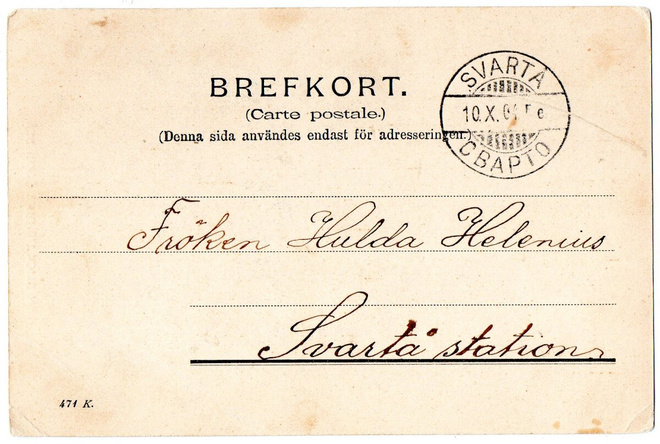 BREFKORT.
(Carte postale.)
(Denna sida användes endast för adresseringen.)
SVARTÅ
10.X.0
СВАРТО
Fröken Hulda Helenius
Svartå station
471 K.